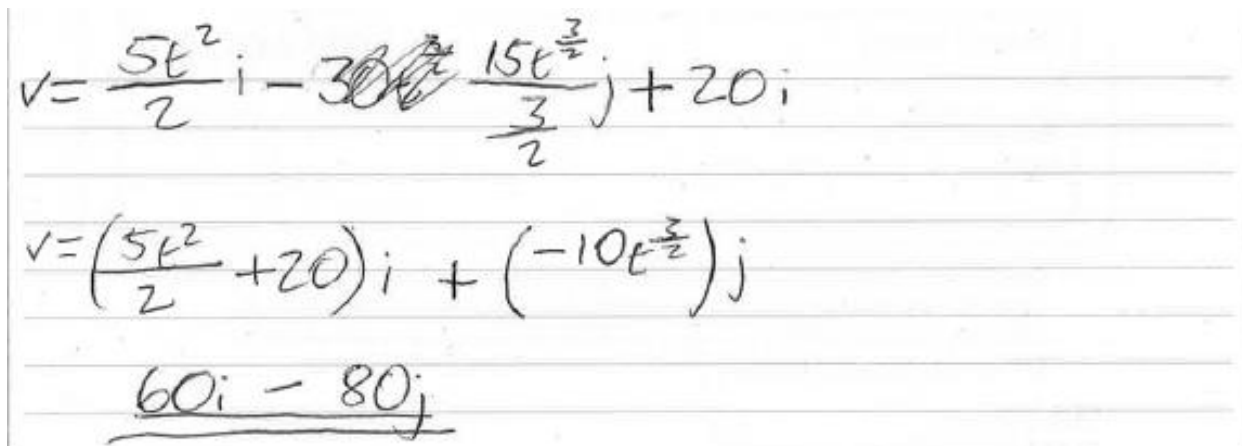 v= 5t²/2 i - 15t^(3/2)/(3/2) j + 20i
v= (5t²/2 + 20)i + (-10t^(3/2))j
60i - 80j